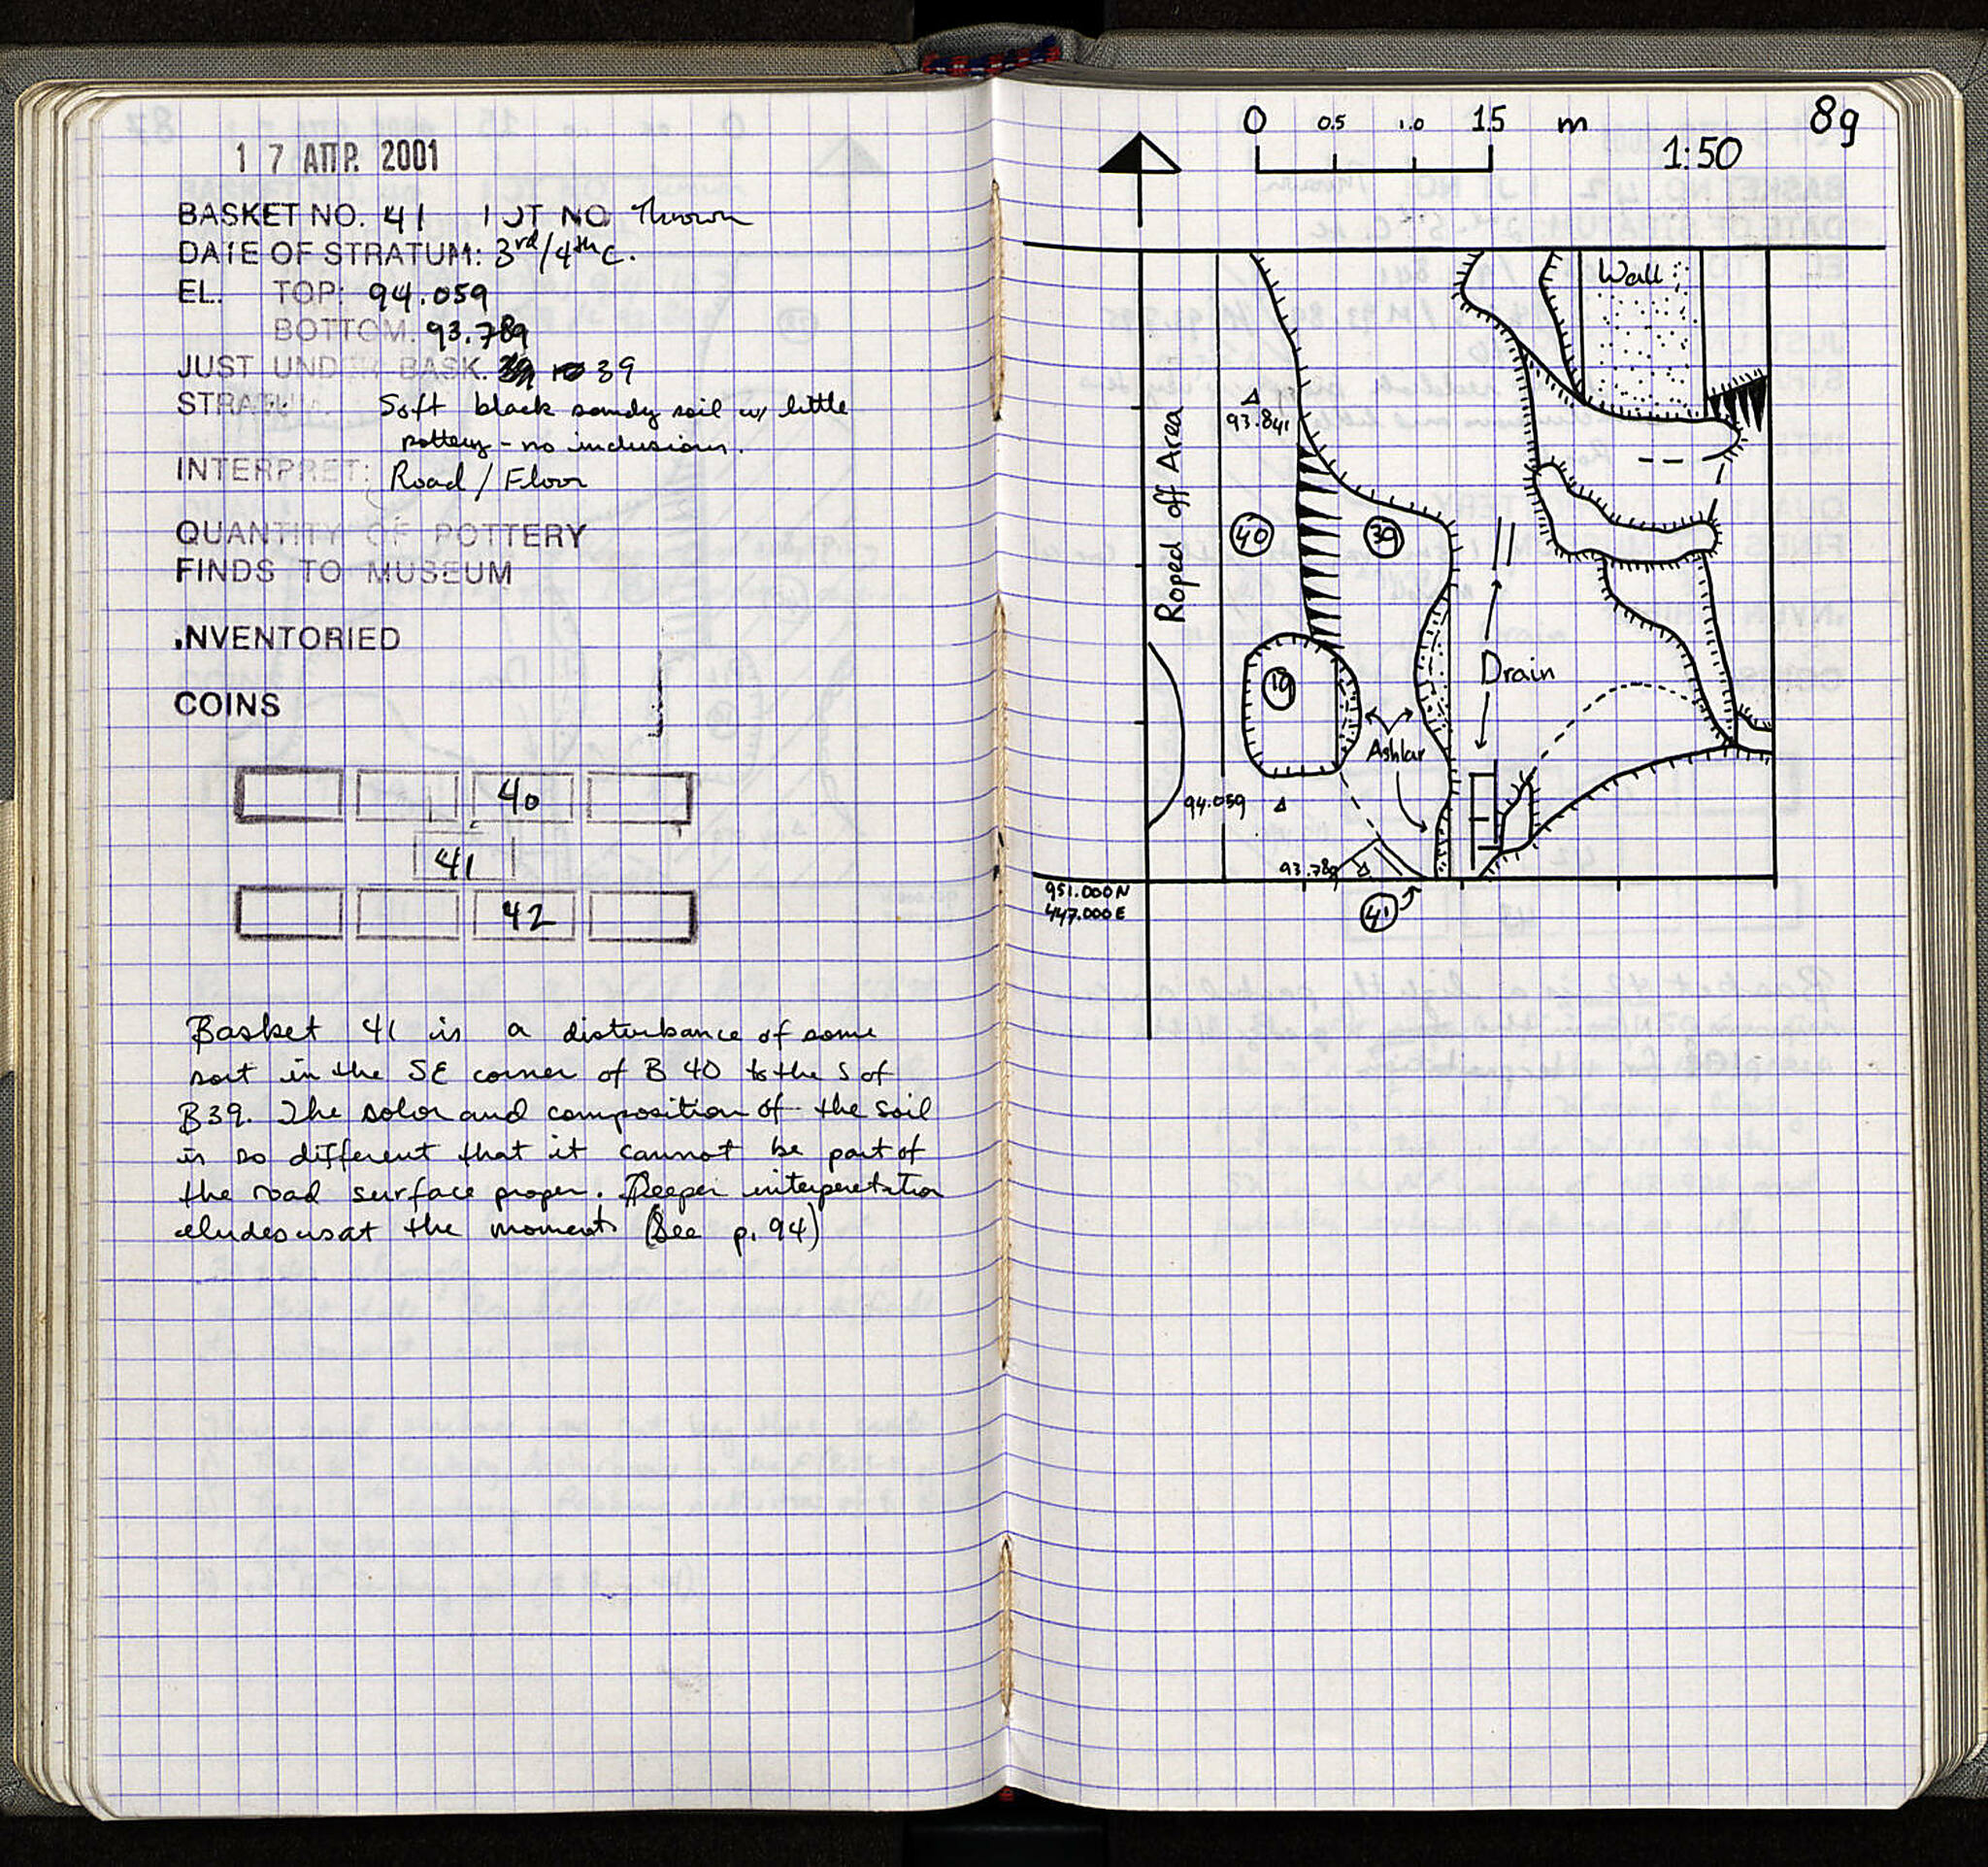 17 ΑΠΡ. 2001
BASKET NO. 41 LOT NO. Thrown
DATE OF STRATUM: 3rd/4th C.
EL. TOP: 94.059
BOTTOM: 93.789
JUST UNDER BASK. 39
STRATUM: Soft black sandy soil w/ little
pottery - no inclusions.
INTERPRET: Road / Floor
QUANTITY OF POTTERY
FINDS TO MUSEUM
INVENTORIED
COINS
40
41
42
Basket 41 is a disturbance of some
sort in the SE corner of B 40 to the S of
B39. The color and composition of the soil
is so different that it cannot be part of
the road surface proper. Deeper interpretation
eludes us at the moment (See p. 94)
89
0 0.5 1.0 1.5 m
1:50
Wall
Roped off Area
93.841
40
39
19
Drain
Ashlar
94.059
93.789
951.000 N
447.000 E
41